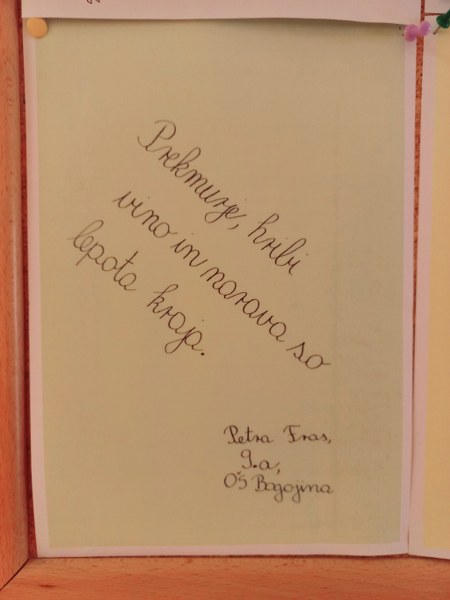 Prekmurje, hribi
vino in narava so
lepota kraja.
Petra Fras,
9.a,
OŠ Bogojina